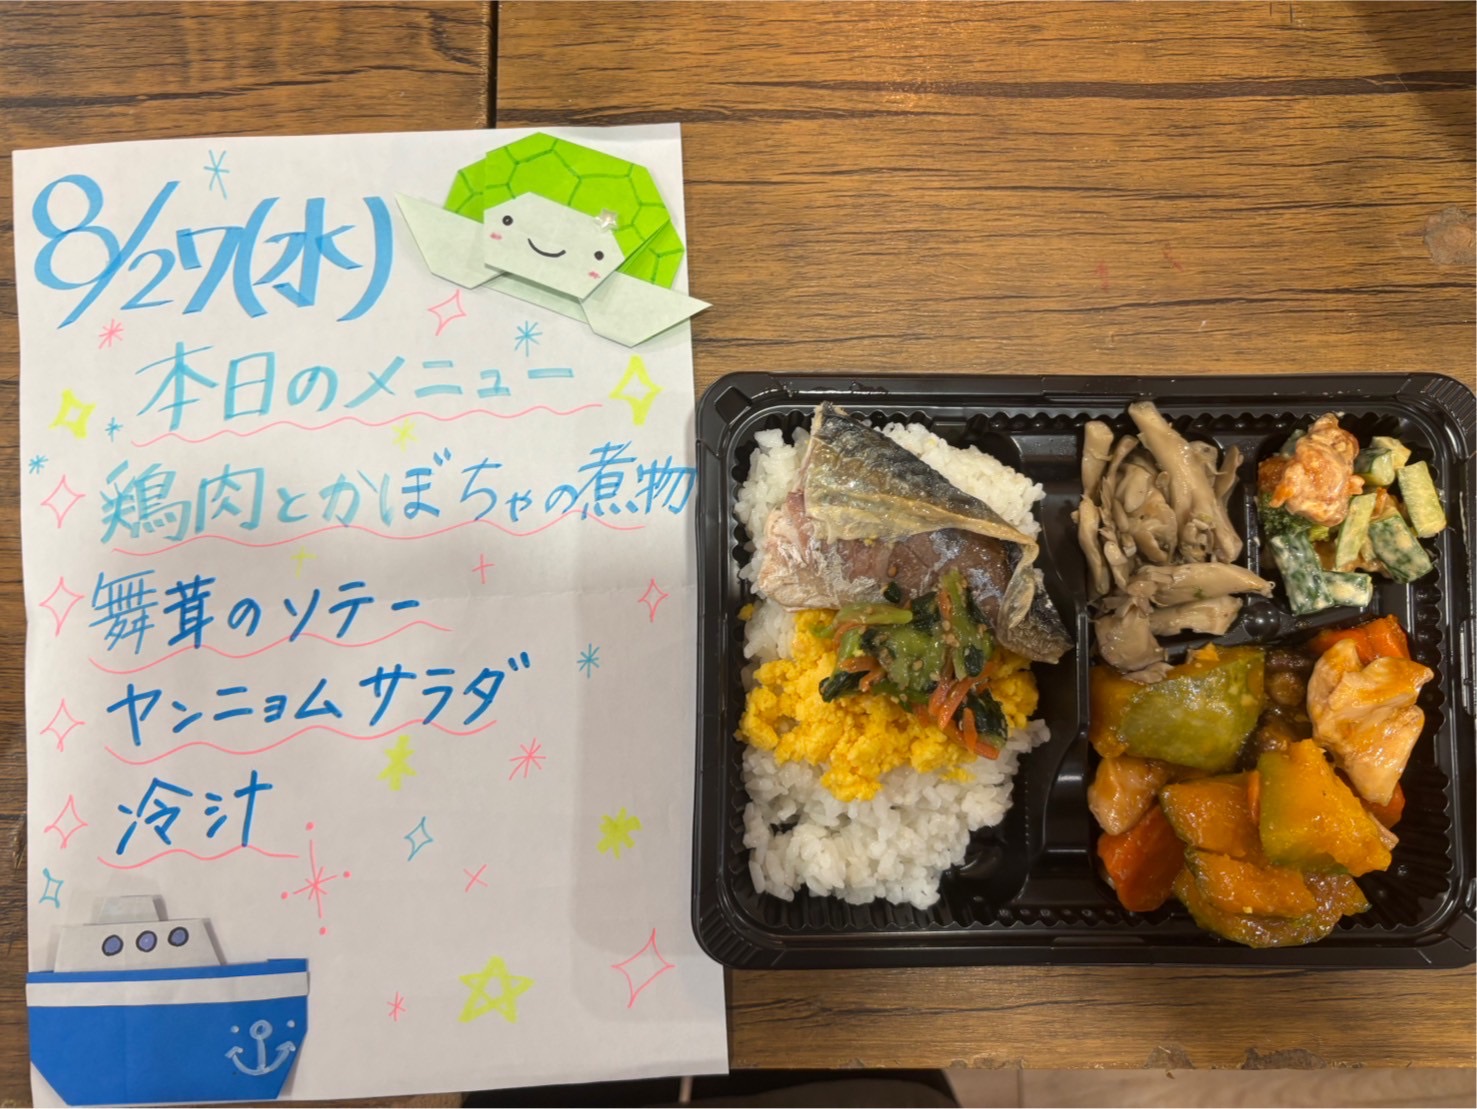 8/27(水)
本日のメニュー
鶏肉とかぼちゃの煮物
舞茸のソテー
ヤンニョムサラダ
冷汁